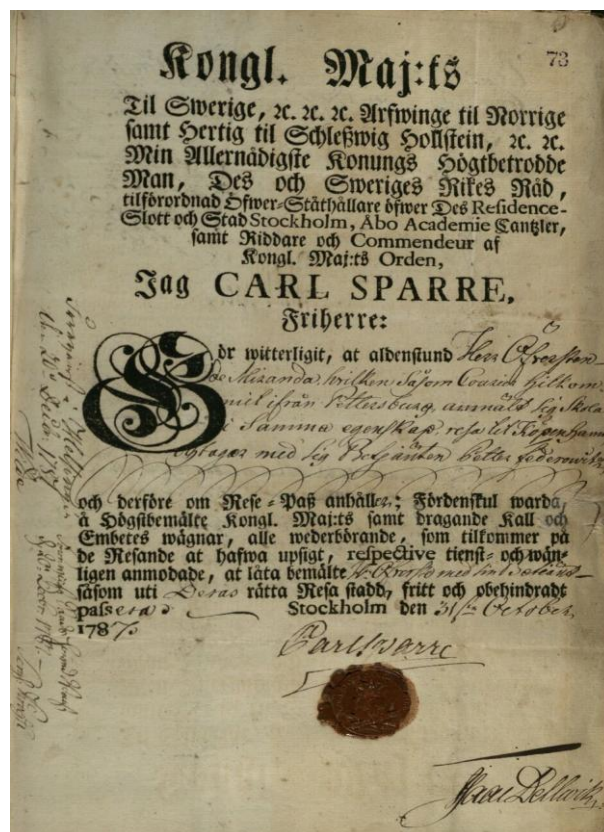 73
Kongl. Maj:ts
Til Swerige, ꝛc. ꝛc. ꝛc. Arfwinge til Norrige
samt Hertig til Schleßwig Hollstein, ꝛc. ꝛc.
Min Allernådigste Konungs Högtbetrodde
Man, Des och Sweriges Rikes Råd,
tilförordnad Öfwer-Ståthållare öfwer Des Residence-
Slott och Stad Stockholm, Åbo Academie Cantzler,
samt Riddare och Commendeur af
Kongl. Maj:ts Orden,
Jag CARL SPARRE,
Friherre:
Gör witterligit, at aldenstund Herr Öfversten
De Miranda, hvilken såsom Courier hitkom
ifrån Pettersburg, anmält sig skola
i samma egenskap resa til Köpenhamn
med sig Betjänten Petter Foderowitz
och derföre om Rese-Paß anhåller; Fördenskul warda,
å Högstbemälte Kongl. Maj:ts samt dragande Kall och
Embetes wägnar, alle wederbörande, som tilkommer på
de Resande at hafwa upsigt, respective tienst- och wän-
ligen anmodade, at låta bemälte Hr Öfverste med
såsom uti Deras rätta Resa stadd, fritt och obehindradt
passera. Stockholm den 31 October
1787.
Carl Sparre